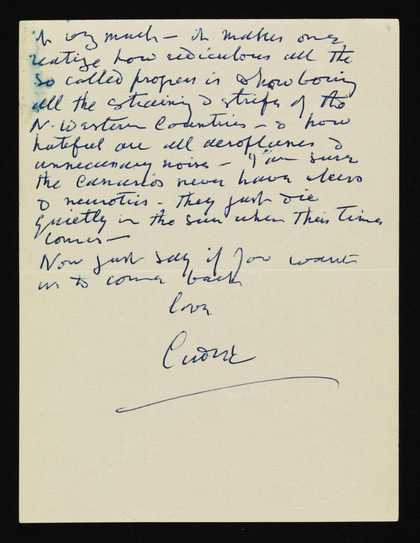 it very much – it makes one
realize how ridiculous all the
so called progress is & how boring
all the straining & strife of the
N. Western Countries – & how
hateful are all aeroplanes &
unnecessary noise – I'am sure
the Canarios never have ulcers
& neurotics – they just die
quietly in the sun when their time
comes –
Now just say if you want
us to come back
love